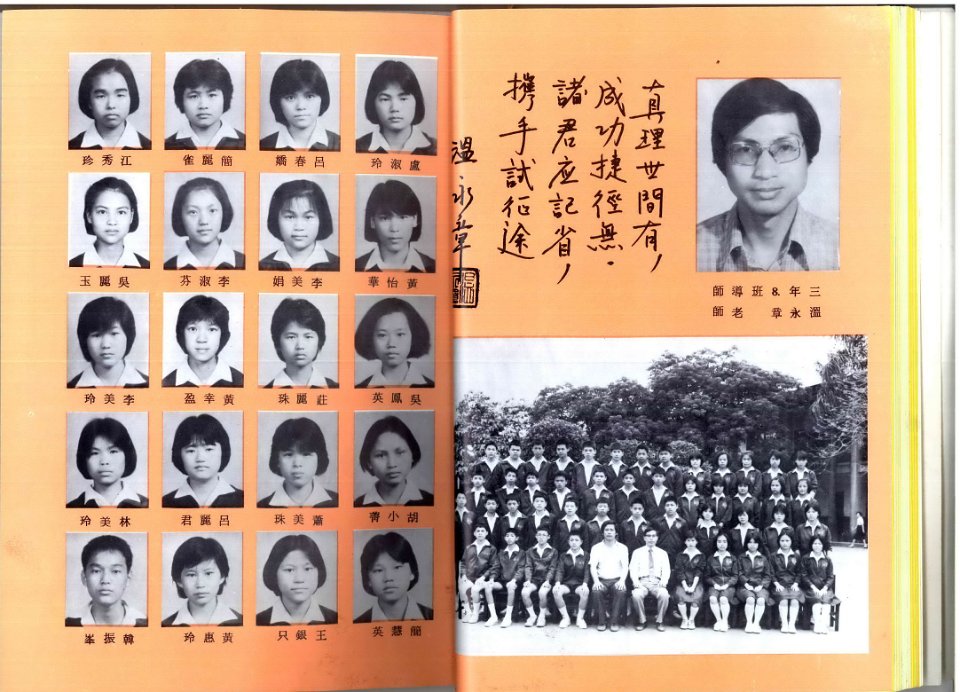 三年8.班導師
溫永章老師
真理世間有,
成功捷徑無.
諸君应記省,
携手試征途
溫永章
盧淑玲 呂春嬌 簡麗雀 江秀珍
黃怡華 李美娟 李淑芬 吳麗玉
吳鳳英 莊麗珠 黃幸盈 李美玲
胡小 蕭美珠 呂麗君 林美玲
簡慧英 王銀只 黃惠玲 韓振峯